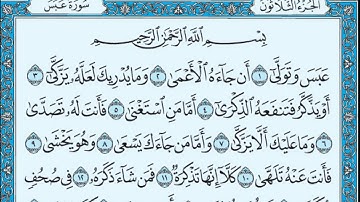 الجزء الثلاثون سورة عبس
بِسْمِ اللَّهِ الرَّحْمَٰنِ الرَّحِيمِ
عَبَسَ وَتَوَلَّىٰ ١ أَن جَاءَهُ الْأَعْمَىٰ ٢ وَمَا يُدْرِيكَ لَعَلَّهُ يَزَّكَّىٰ ٣
أَوْ يَذَّكَّرُ فَتَنفَعَهُ الذِّكْرَىٰ ٤ أَمَّا مَنِ اسْتَغْنَىٰ ٥ فَأَنتَ لَهُ تَصَدَّىٰ
٦ وَمَا عَلَيْكَ أَلَّا يَزَّكَّىٰ ٧ وَأَمَّا مَن جَاءَكَ يَسْعَىٰ ٨ وَهُوَ يَخْشَىٰ ٩
فَأَنتَ عَنْهُ تَلَهَّىٰ ١٠ كَلَّا إِنَّهَا تَذْكِرَةٌ ١١ فَمَن شَاءَ ذَكَرَهُ ١٢ فِي صُحُفٍ